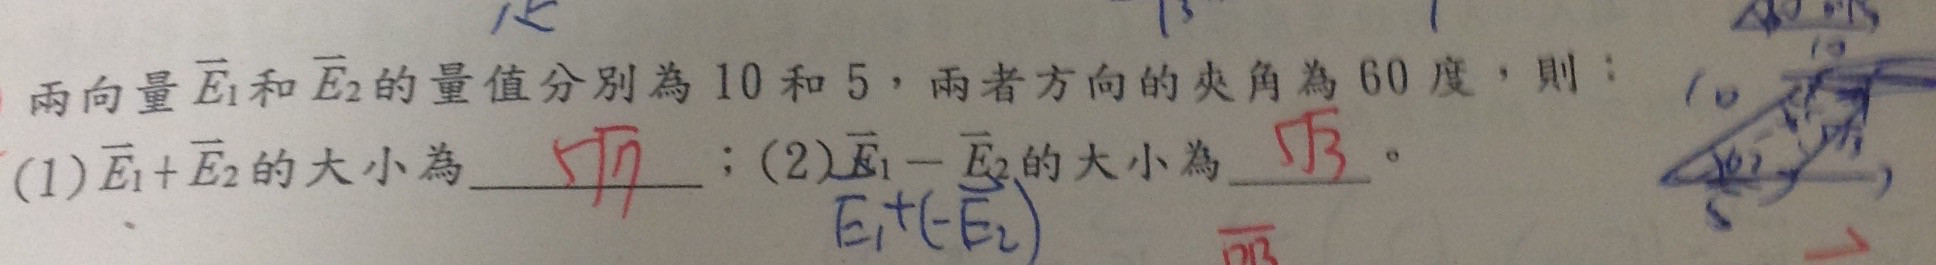 兩向量 E₁和 E₂的量值分別為 10 和 5，兩者方向的夾角為 60 度，則：
(1) E₁+E₂的大小為 5√7 ；(2) E₁－E₂的大小為 5√3 。
E₁+(-E₂)
10
10
5